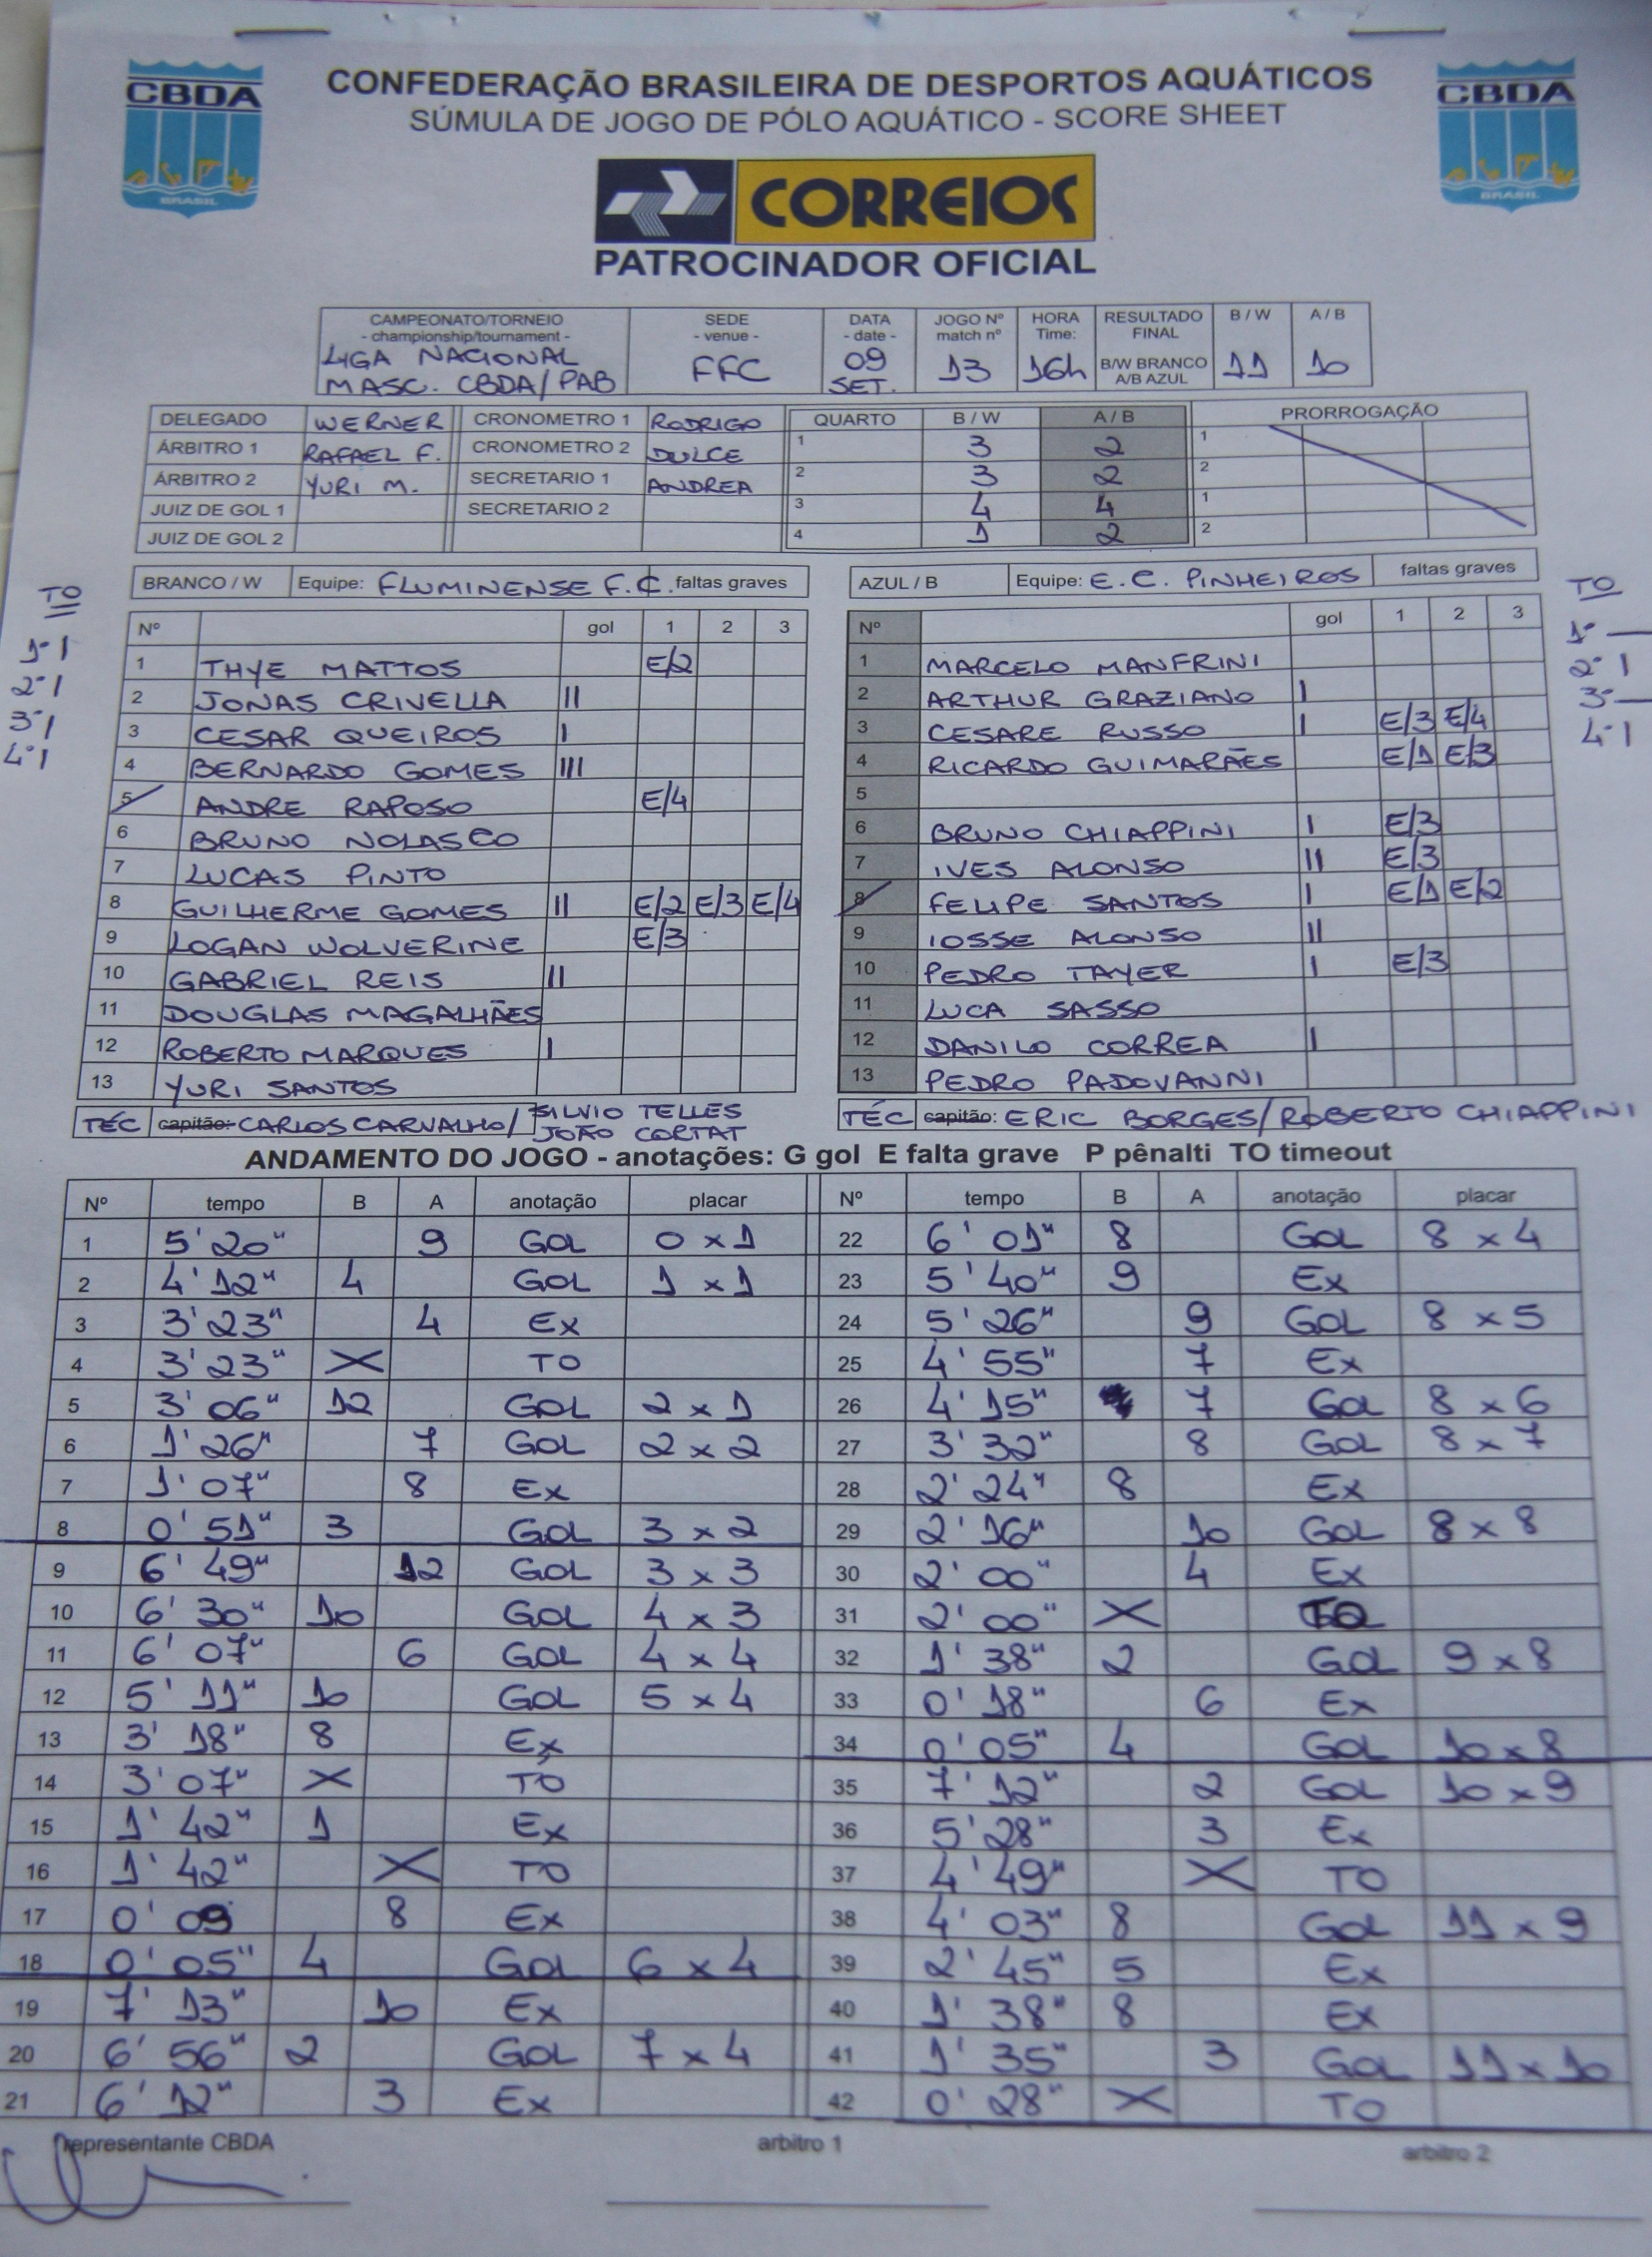 CBDA
BRASIL
CONFEDERAÇÃO BRASILEIRA DE DESPORTOS AQUÁTICOS
SÚMULA DE JOGO DE PÓLO AQUÁTICO - SCORE SHEET
CORREIOS
PATROCINADOR OFICIAL
CBDA
BRASIL
CAMPEONATO/TORNEIO SEDE DATA JOGO Nº HORA RESULTADO FINAL B / W A / B
- championship/tournament - - venue - - date - match nº Time: B/W BRANCO A/B AZUL
LIGA NACIONAL MASC. CBDA/PAB FFC 09 SET. 13 16h 11 10
DELEGADO WERNER CRONOMETRO 1 RODRIGO QUARTO B / W A / B PRORROGAÇÃO
ÁRBITRO 1 RAFAEL F. CRONOMETRO 2 DULCE 1 3 2 1
ÁRBITRO 2 YURI M. SECRETARIO 1 ANDREA 2 3 2 2
JUIZ DE GOL 1 SECRETARIO 2 3 4 4 1
JUIZ DE GOL 2 4 1 2 2
BRANCO / W Equipe: FLUMINENSE F.C. faltas graves
TO
1º I
2º I
3º I
4º I
Nº gol 1 2 3
1 THYE MATTOS E/2
2 JONAS CRIVELLA II
3 CESAR QUEIROS I
4 BERNARDO GOMES III
5 ANDRE RAPOSO E/4
6 BRUNO NOLASCO
7 LUCAS PINTO
8 GUILHERME GOMES II E/2 E/3 E/4
9 LOGAN WOLVERINE E/3
10 GABRIEL REIS II
11 DOUGLAS MAGALHÃES
12 ROBERTO MARQUES I
13 YURI SANTOS
TÉC capitão: CARLOS CARVALHO/ SILVIO TELLES
JOÃO CORTAT
AZUL / B Equipe: E.C. PINHEIROS faltas graves
TO
1º —
2º I
3º —
4º I
Nº gol 1 2 3
1 MARCELO MANFRINI
2 ARTHUR GRAZIANO I
3 CESARE RUSSO I E/3 E/4
4 RICARDO GUIMARÃES E/1 E/3
5
6 BRUNO CHIAPPINI I E/3
7 IVES ALONSO II E/3
8 FELIPE SANTOS I E/1 E/2
9 IOSSE ALONSO II
10 PEDRO TAYER I E/3
11 LUCA SASSO
12 DANILO CORREA I
13 PEDRO PADOVANNI
TÉC capitão: ERIC BORGES/ROBERTO CHIAPPINI
ANDAMENTO DO JOGO - anotações: G gol E falta grave P pênalti TO timeout
Nº tempo B A anotação placar
1 5' 20" 9 GOL 0 x 1
2 4' 12" 4 GOL 1 x 1
3 3' 23" 4 EX
4 3' 23" X TO
5 3' 06" 12 GOL 2 x 1
6 1' 26" 7 GOL 2 x 2
7 1' 07" 8 EX
8 0' 51" 3 GOL 3 x 2
9 6' 49" 12 GOL 3 x 3
10 6' 30" 10 GOL 4 x 3
11 6' 07" 6 GOL 4 x 4
12 5' 11" 10 GOL 5 x 4
13 3' 18" 8 EX
14 3' 07" X TO
15 1' 42" 1 EX
16 1' 42" X TO
17 0' 09 8 EX
18 0' 05" 4 GOL 6 x 4
19 7' 13" 10 EX
20 6' 56" 2 GOL 7 x 4
21 6' 12" 3 EX
Nº tempo B A anotação placar
22 6' 01" 8 GOL 8 x 4
23 5' 40" 9 EX
24 5' 26" 9 GOL 8 x 5
25 4' 55" 7 EX
26 4' 15" 7 GOL 8 x 6
27 3' 32" 8 GOL 8 x 7
28 2' 24" 8 EX
29 2' 16" 10 GOL 8 x 8
30 2' 00" 4 EX
31 2' 00" X TO
32 1' 38" 2 GOL 9 x 8
33 0' 18" 6 EX
34 0' 05" 4 GOL 10 x 8
35 7' 12" 2 GOL 10 x 9
36 5' 28" 3 EX
37 4' 49" X TO
38 4' 03" 8 GOL 11 x 9
39 2' 45" 5 EX
40 1' 38" 8 EX
41 1' 35" 3 GOL 11 x 10
42 0' 28" X TO
representante CBDA arbitro 1 arbitro 2